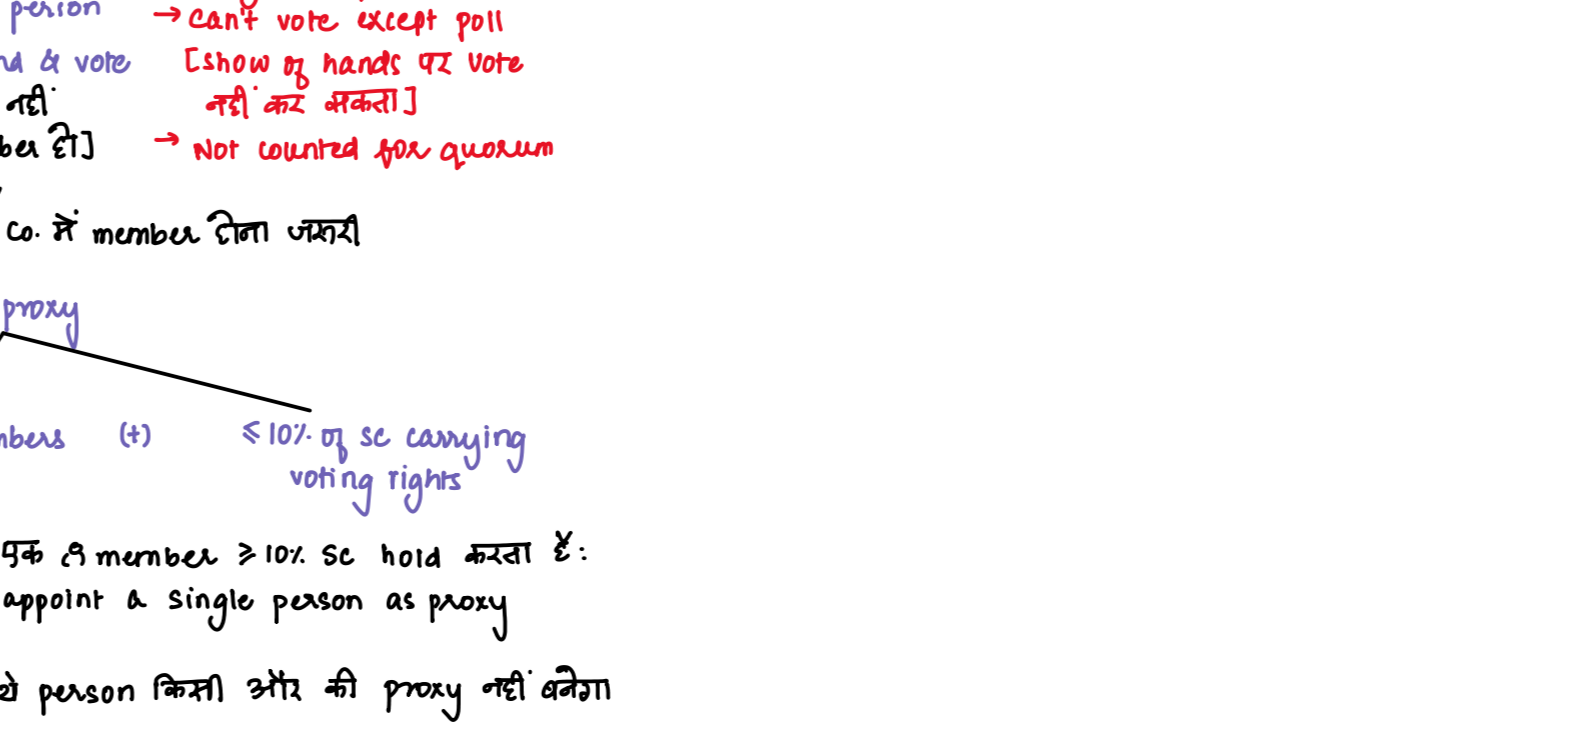 person → can't vote except poll
nd & vote [show of hands पर vote
नहीं नहीं कर सकता]
ber हो] → Not counted for quorum
co. में member होना जरूरी
proxy
mbers (+) ≤ 10% of sc carrying
voting rights
एक ही member ≥ 10% sc hold करता है:
appoint a single person as proxy
ये person किसी और की proxy नहीं बनेगा